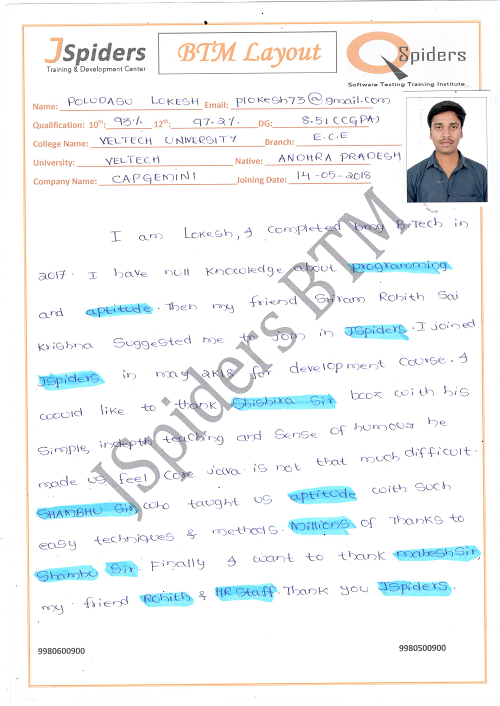 JSpiders
Training & Development Center
BTM Layout
QSpiders
Software Testing Training Institute
Name: POLUDASU LOKESH Email: plokesh73@gmail.com
Qualification: 10th: 93% 12th: 97.2% DG: 8.51 (CGPA)
College Name: VELTECH UNIVERSITY Branch: E.C.E
University: VELTECH Native: ANDHRA PRADESH
Company Name: CAPGEMINI Joining Date: 14-05-2018
I am Lokesh, I completed bmy B.Tech in
2017. I have null knowledge about programming
and aptitude. Then my friend Sriram Rohith Sai
Krishna Suggested me to join in JSpiders. I joined
JSpiders in may 2K18 for development course. I
would like to thank Shishira Sir bcoz with his
Simple, indepth teaching and Sense of humour he
made us feel core java is not that much difficult.
SHAMBHU Sir, who taught us aptitude with such
easy techniques & methods. Millions of Thanks to
Shambu Sir. Finally I want to thank mahesh Sir,
my friend Rohith & HR Staff. Thank you JSpiders.
JSpiders BTM
9980600900 9980500900